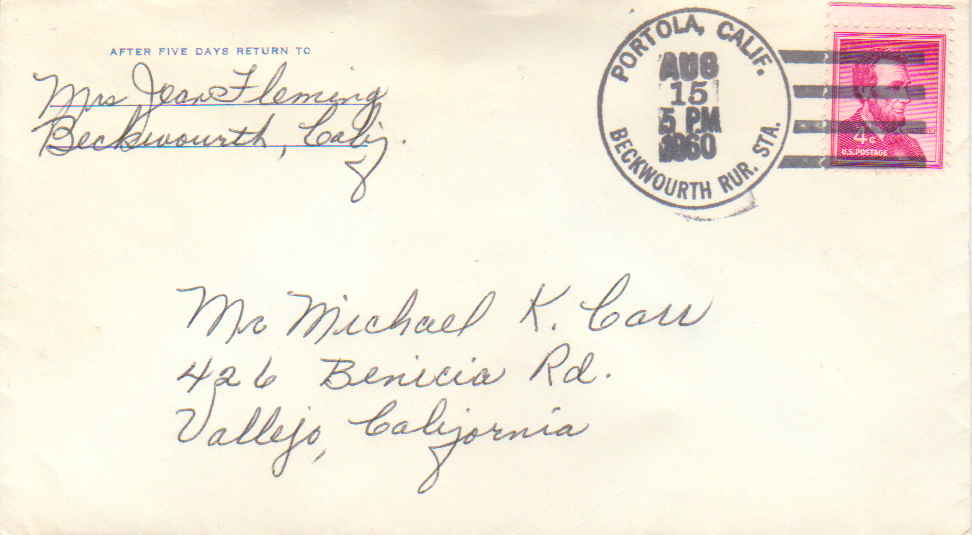 AFTER FIVE DAYS RETURN TO
Mrs Jean Fleming
Beckwourth, Calif.
PORTOLA, CALIF.
AUG
15
5 PM
1960
BECKWOURTH RUR. STA.
4¢
U.S. POSTAGE
Mr Michael K. Carr
426 Benicia Rd.
Vallejo, California